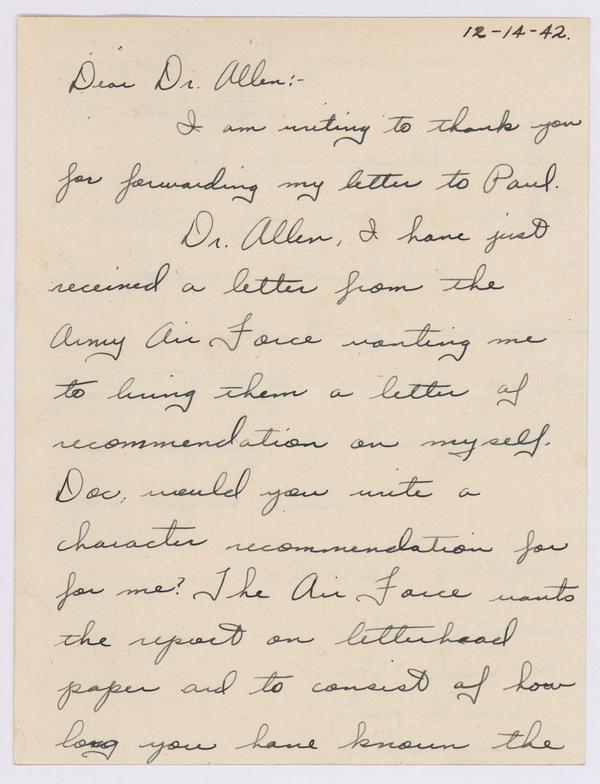 12-14-42.
Dear Dr. Allen:-
I am writing to thank you
for forwarding my letter to Paul.
Dr. Allen, I have just
received a letter from the
Army Air Force wanting me
to bring them a letter of
recommendation on myself.
Doc, would you write a
character recommendation for
for me? The Air Force wants
the report on letterhead
paper and to consist of how
long you have known the